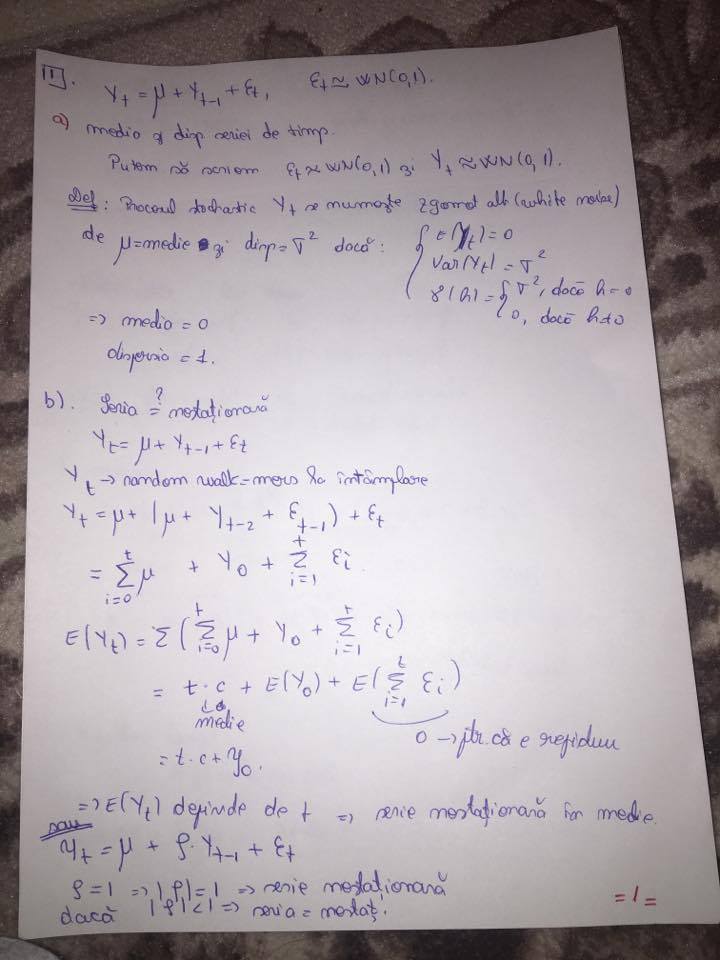 II.
Y_t = μ + Y_{t-1} + ε_t, ε_t ≈ WN(0,1).
a) media și disp seriei de timp.
Putem să scriem ε_t ≈ WN(0,1) și Y_t ≈ WN(0,1).
Def: Procesul stochastic Y_t se numește zgomot alb (white noise)
de μ = medie și disp = σ² dacă: { E(Y_t) = 0
Var(Y_t) = σ²
γ(h) = { σ², dacă h = 0
0, dacă h ≠ 0
=> media = 0
dispersia = 1.
b). Seria =? nestaționară
Y_t = μ + Y_{t-1} + ε_t
Y_t → random walk = mers la întâmplare
Y_t = μ + (μ + Y_{t-2} + ε_{t-1}) + ε_t
= Σ_{i=0}^{t} μ + Y_0 + Σ_{i=1}^{t} ε_i
E(Y_t) = Σ(Σ_{i=0}^{t} μ + Y_0 + Σ_{i=1}^{t} ε_i)
= t·c + E(Y_0) + E(Σ_{i=1}^{t} ε_i)
medie
0 → ptr. că e reziduu
= t·c + Y_0.
=> E(Y_t) depinde de t => serie nestaționară în medie.
sau
Y_t = μ + ρ·Y_{t-1} + ε_t
ρ = 1 => |ρ| = 1 => serie nestaționară
dacă |ρ| < 1 => seria = nestaț.
= 1 =